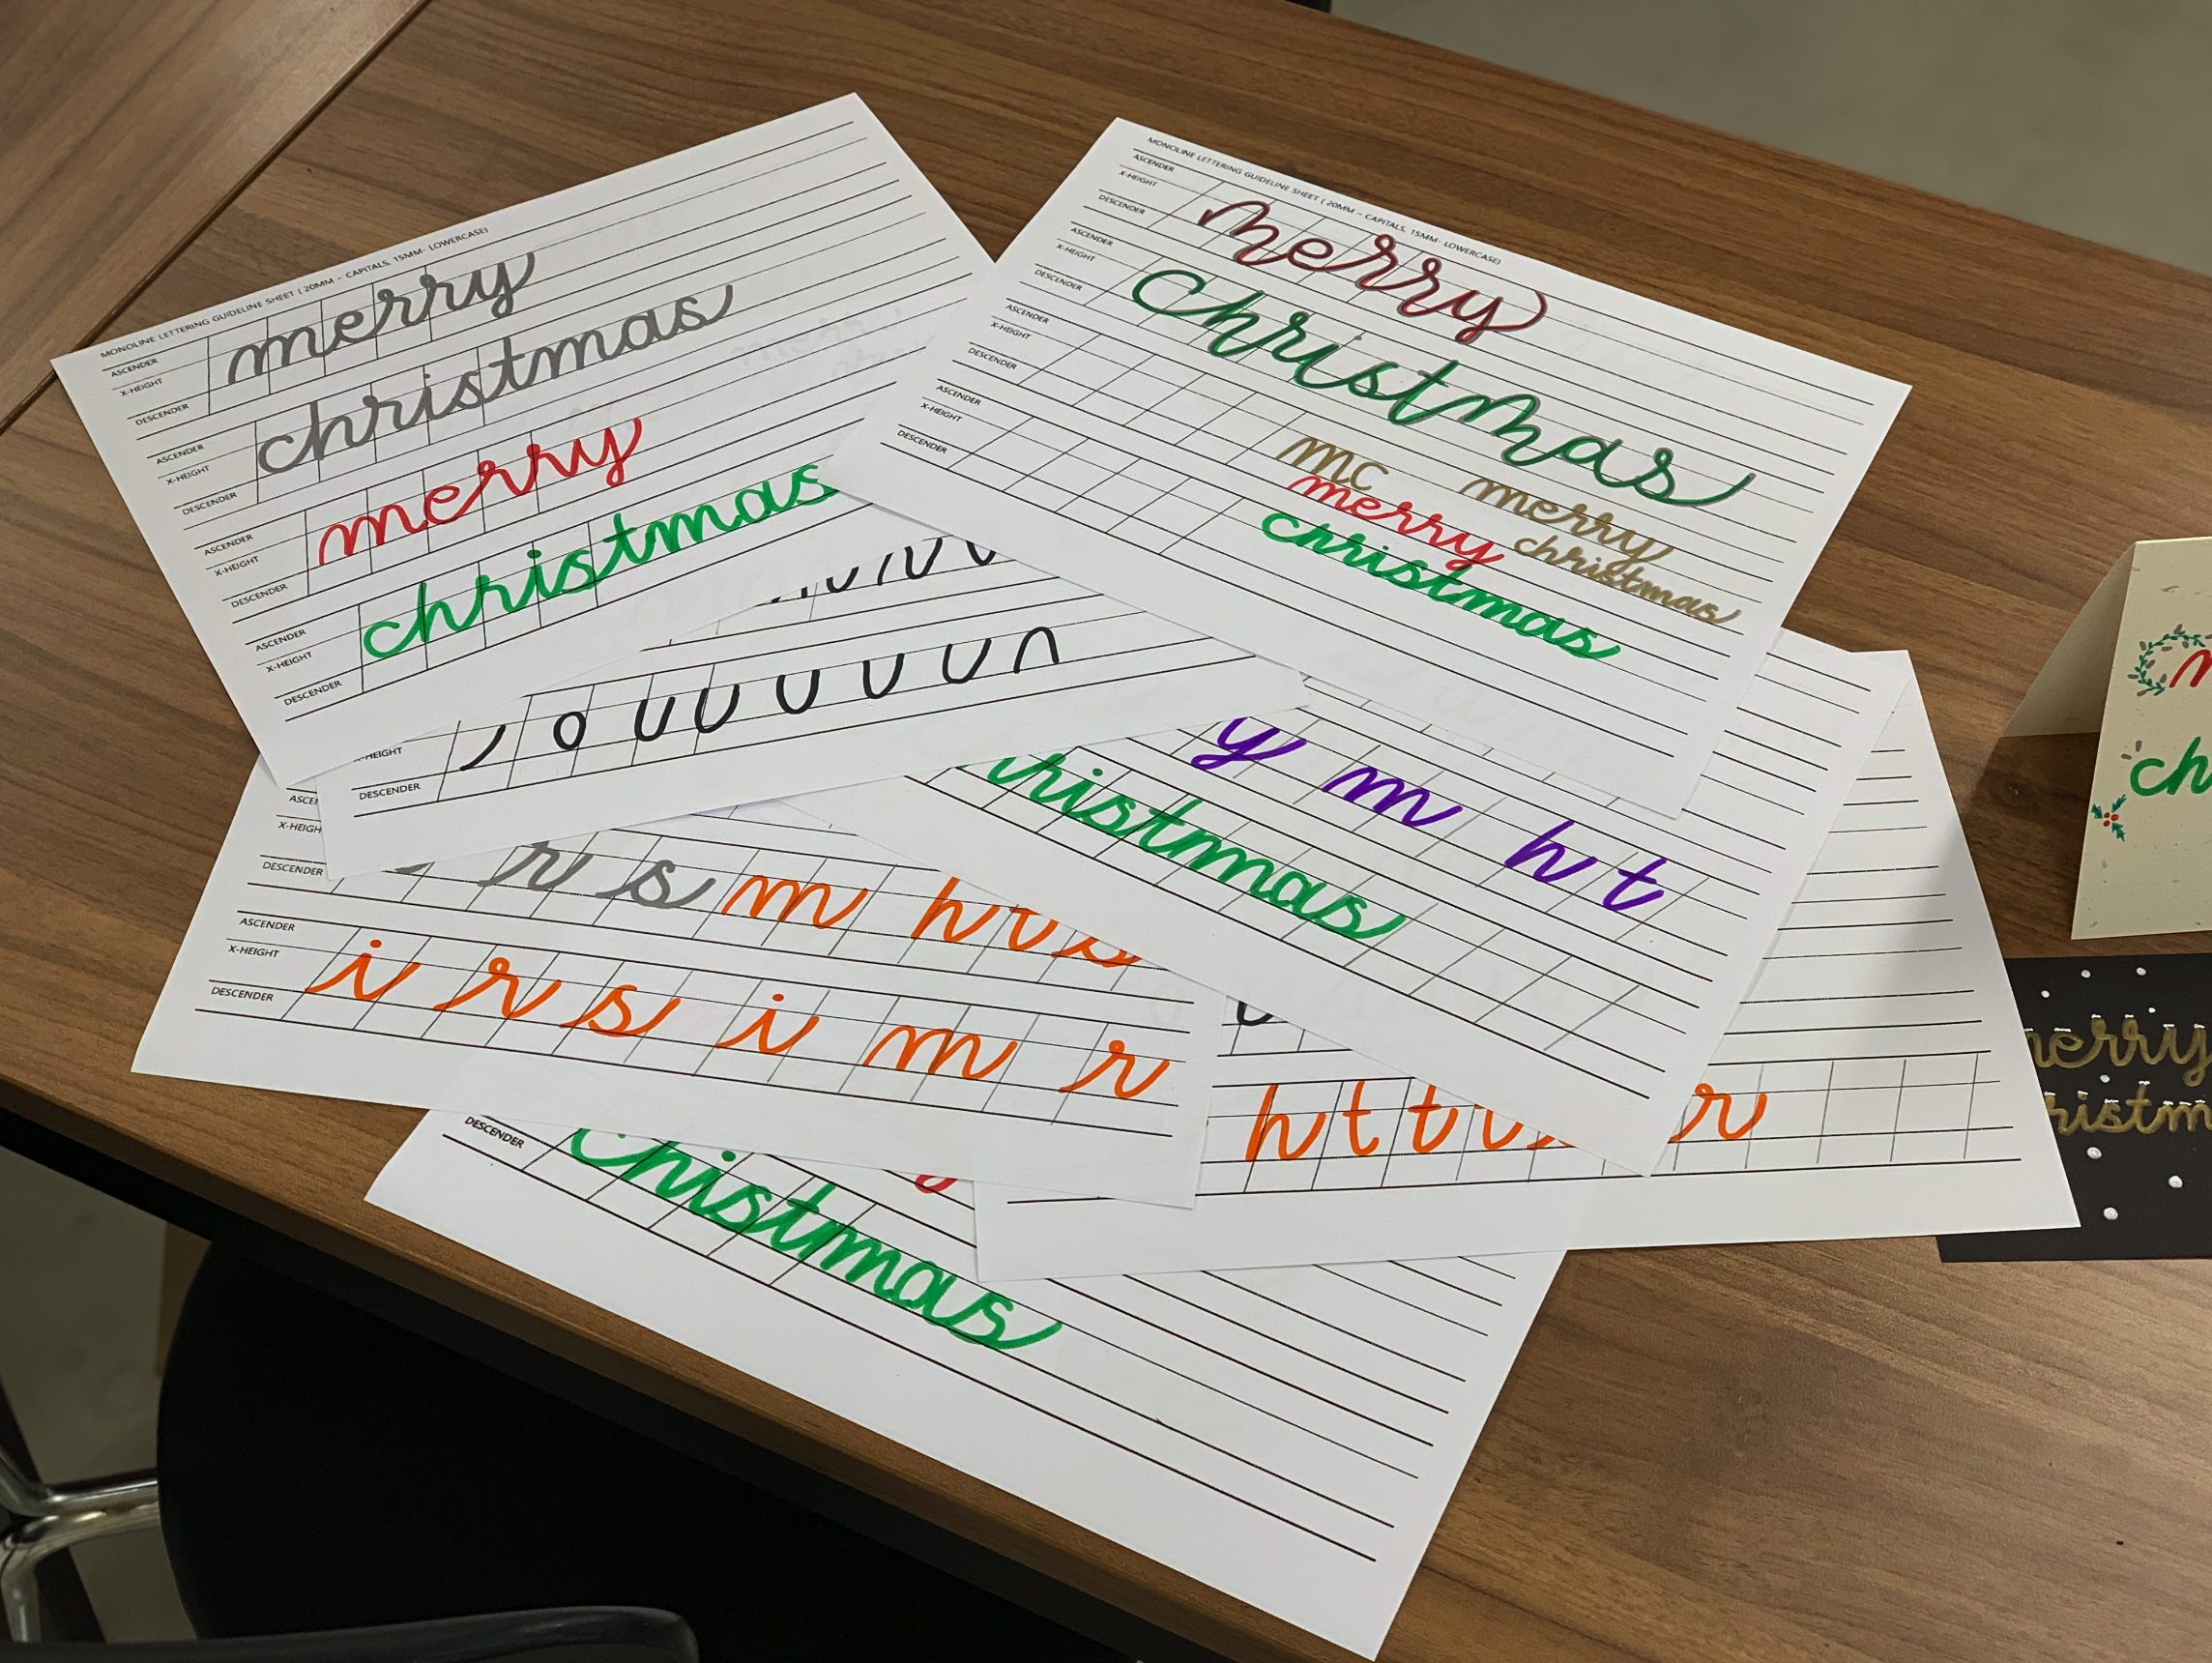 MONOLINE LETTERING GUIDELINE SHEET ( 20MM – CAPITALS, 15MM- LOWERCASE)
ASCENDER
X-HEIGHT
DESCENDER
merry
ASCENDER
X-HEIGHT
DESCENDER
christmas
ASCENDER
X-HEIGHT
DESCENDER
merry
ASCENDER
X-HEIGHT
DESCENDER
christmas
MONOLINE LETTERING GUIDELINE SHEET ( 20MM – CAPITALS, 15MM- LOWERCASE)
ASCENDER
X-HEIGHT
DESCENDER
merry
ASCENDER
X-HEIGHT
DESCENDER
christmas
ASCENDER
X-HEIGHT
DESCENDER
mc merry
merry christmas
ASCENDER
X-HEIGHT
DESCENDER
christmas
DESCENDER
o u u u u u n
y m h t
christmas
X-HEIGHT
DESCENDER
r s m h
ASCENDER
X-HEIGHT
DESCENDER
i r s i m r
h t t r
DESCENDER
christmas
merry